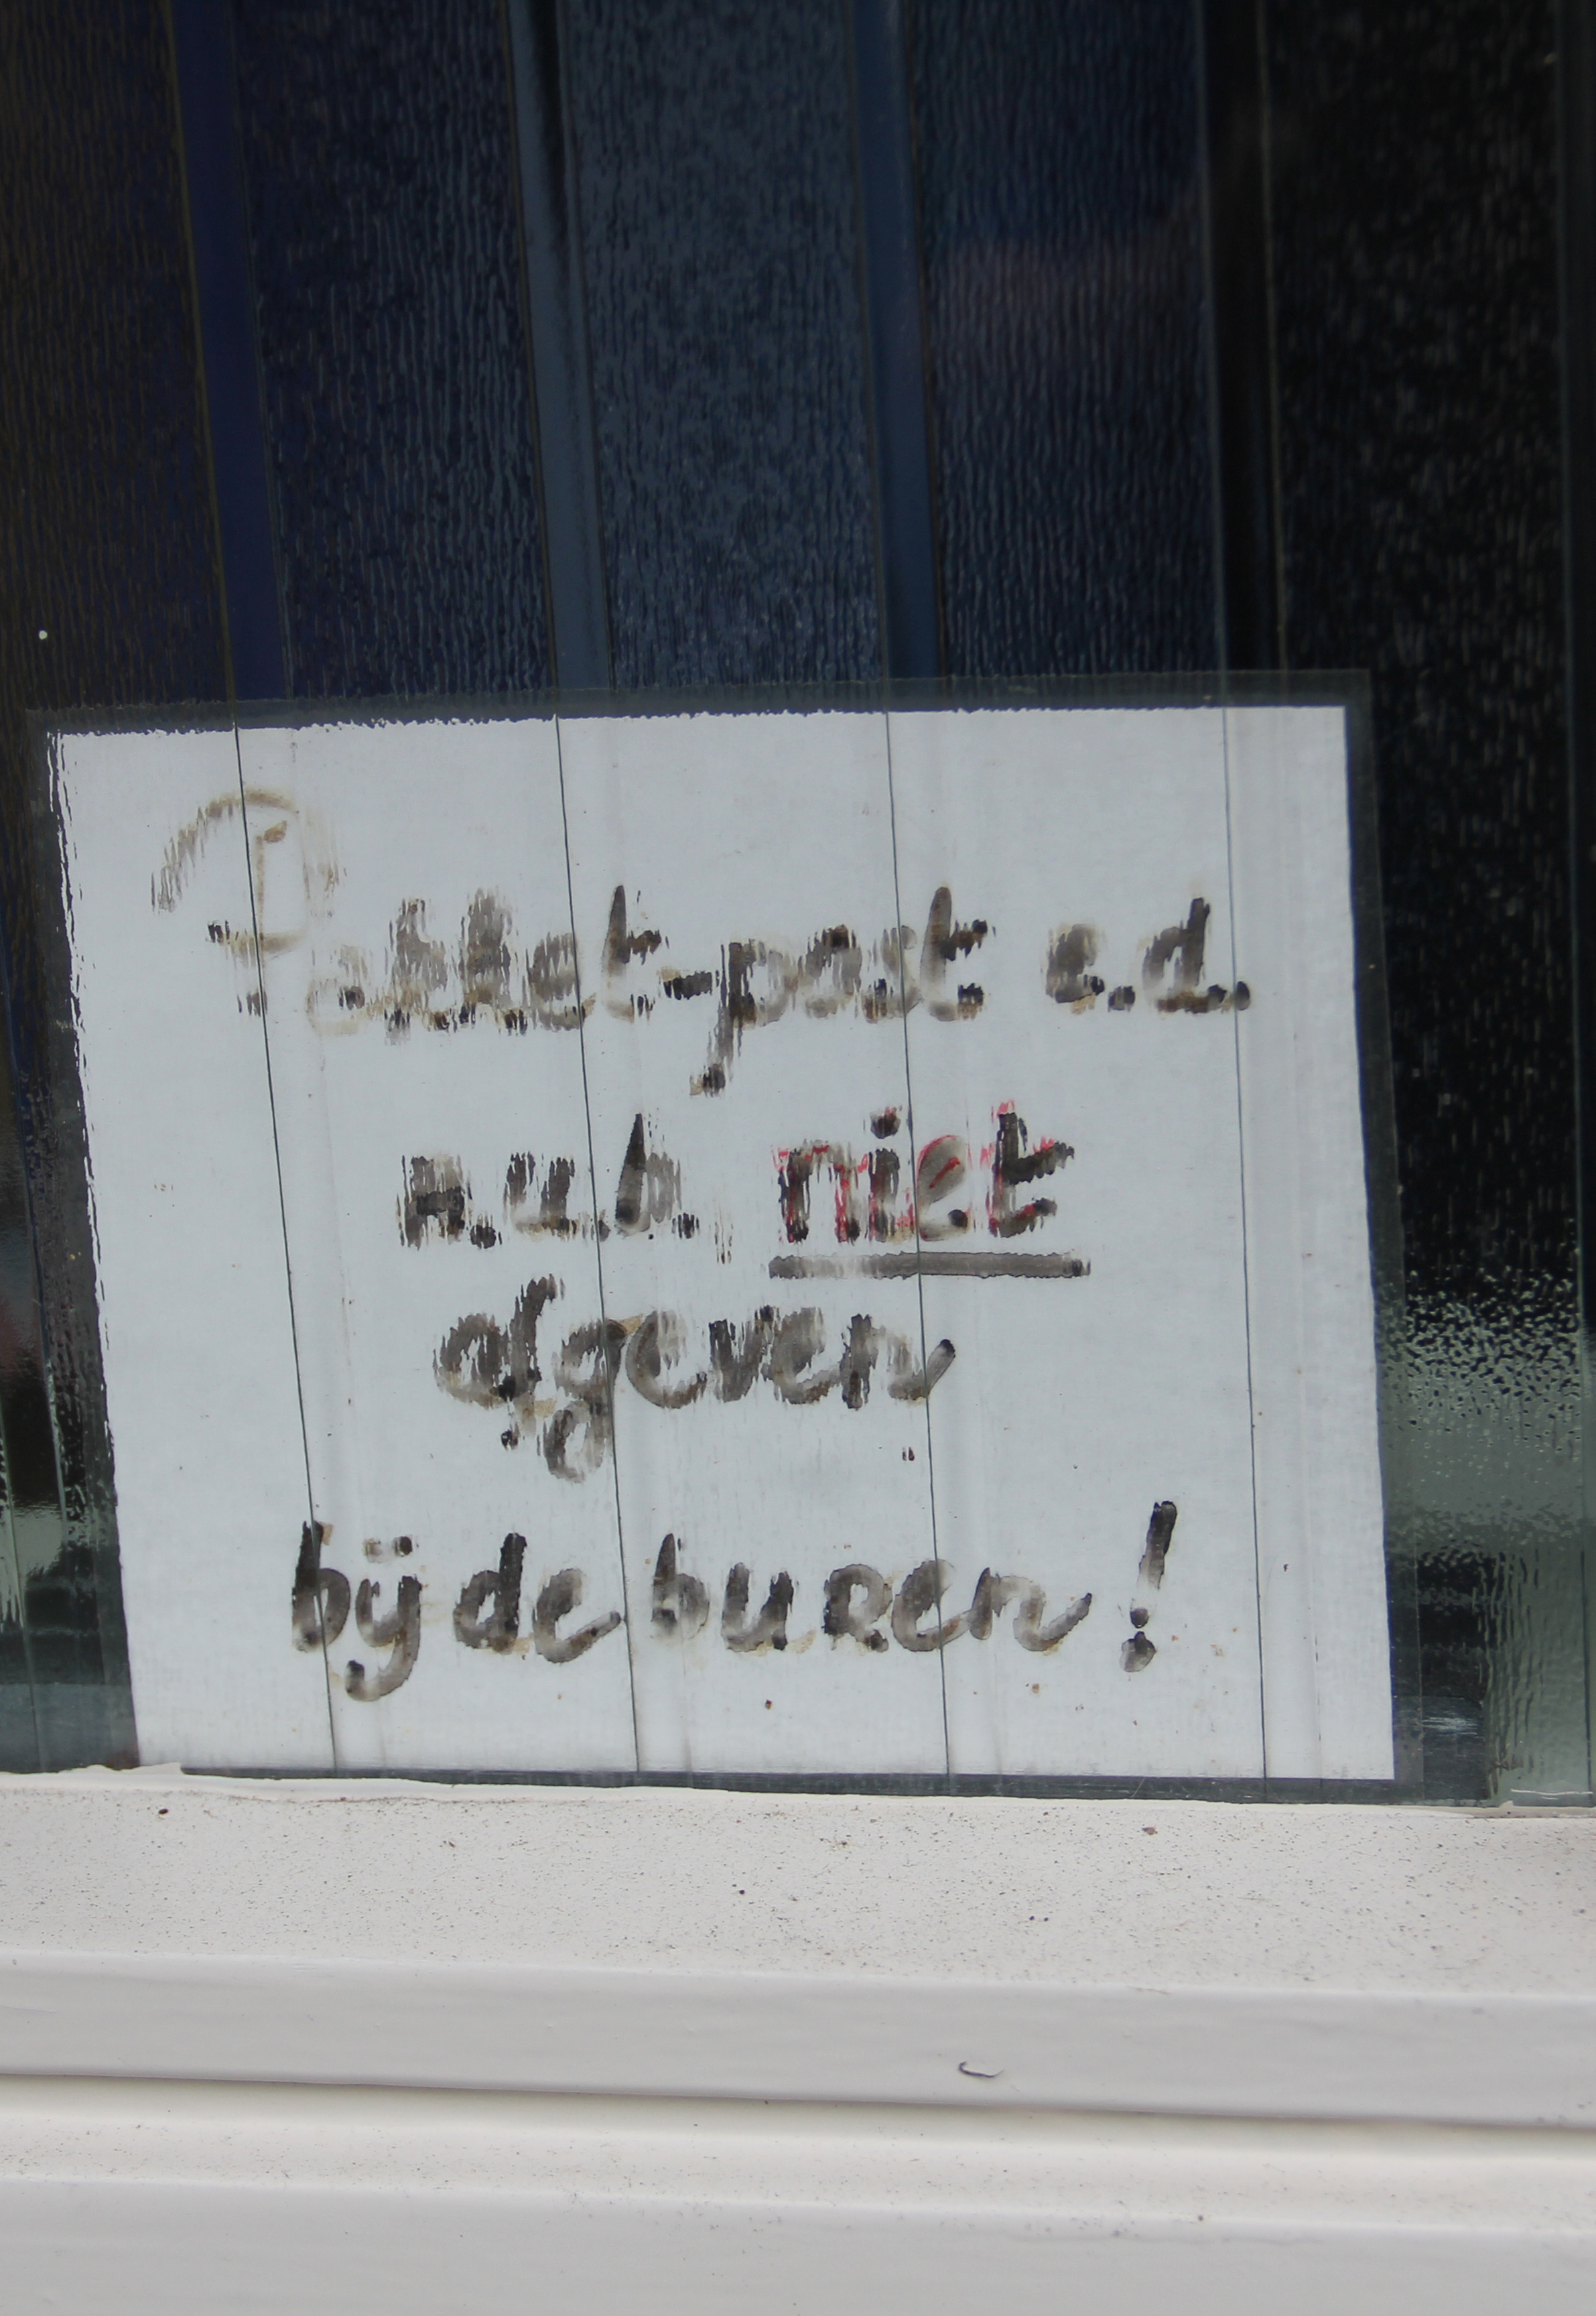 Pakket-post e.d.
a.u.b. niet
afgeven
bij de buren!